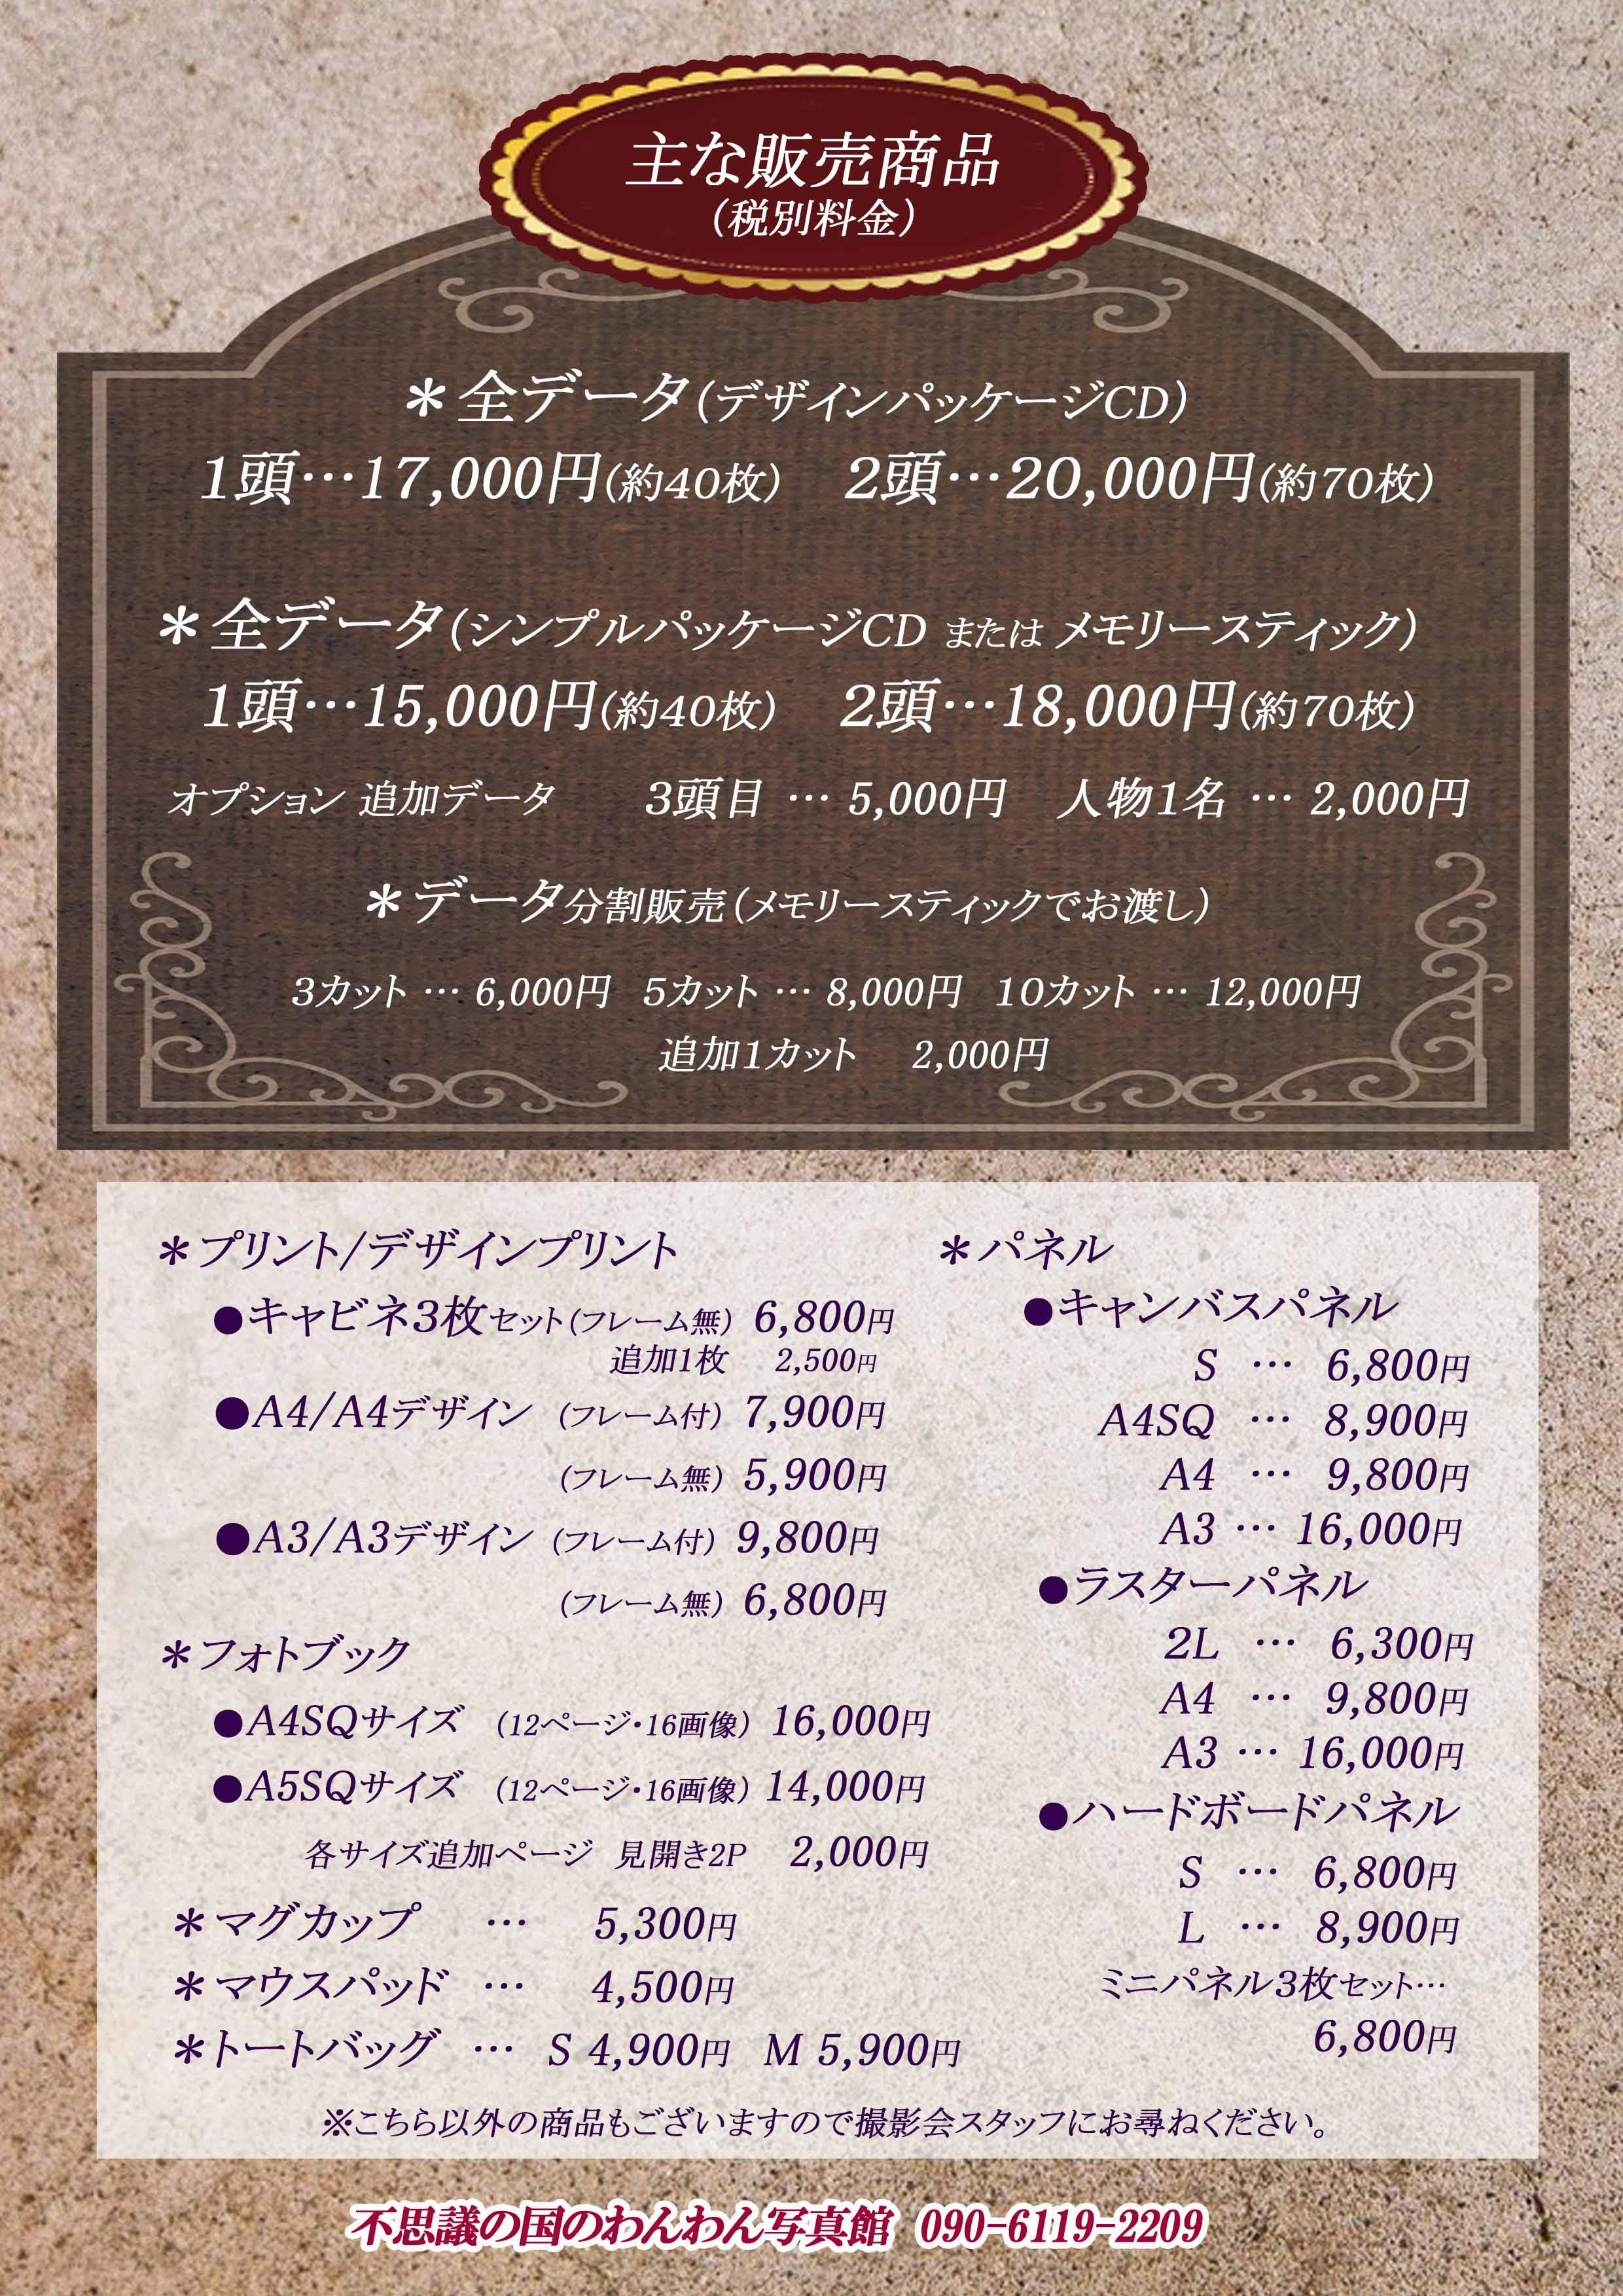 主な販売商品
（税別料金）
＊全データ（デザインパッケージCD）
1頭…17,000円（約40枚） 2頭…20,000円（約70枚）
＊全データ（シンプルパッケージCD または メモリースティック）
1頭…15,000円（約40枚） 2頭…18,000円（約70枚）
オプション 追加データ 3頭目 … 5,000円 人物1名 … 2,000円
＊データ分割販売（メモリースティックでお渡し）
3カット … 6,000円 5カット … 8,000円 10カット … 12,000円
追加1カット 2,000円
＊プリント/デザインプリント
●キャビネ3枚セット（フレーム無） 6,800円
追加1枚 2,500円
●A4/A4デザイン （フレーム付） 7,900円
（フレーム無） 5,900円
●A3/A3デザイン （フレーム付） 9,800円
（フレーム無） 6,800円
＊フォトブック
●A4SQサイズ （12ページ・16画像） 16,000円
●A5SQサイズ （12ページ・16画像） 14,000円
各サイズ追加ページ 見開き2P 2,000円
＊マグカップ … 5,300円
＊マウスパッド … 4,500円
＊トートバッグ … S 4,900円 M 5,900円
＊パネル
●キャンバスパネル
S … 6,800円
A4SQ … 8,900円
A4 … 9,800円
A3 … 16,000円
●ラスターパネル
2L … 6,300円
A4 … 9,800円
A3 … 16,000円
●ハードボードパネル
S … 6,800円
L … 8,900円
ミニパネル3枚セット…
6,800円
※こちら以外の商品もございますので撮影会スタッフにお尋ねください。
不思議の国のわんわん写真館 090-6119-2209